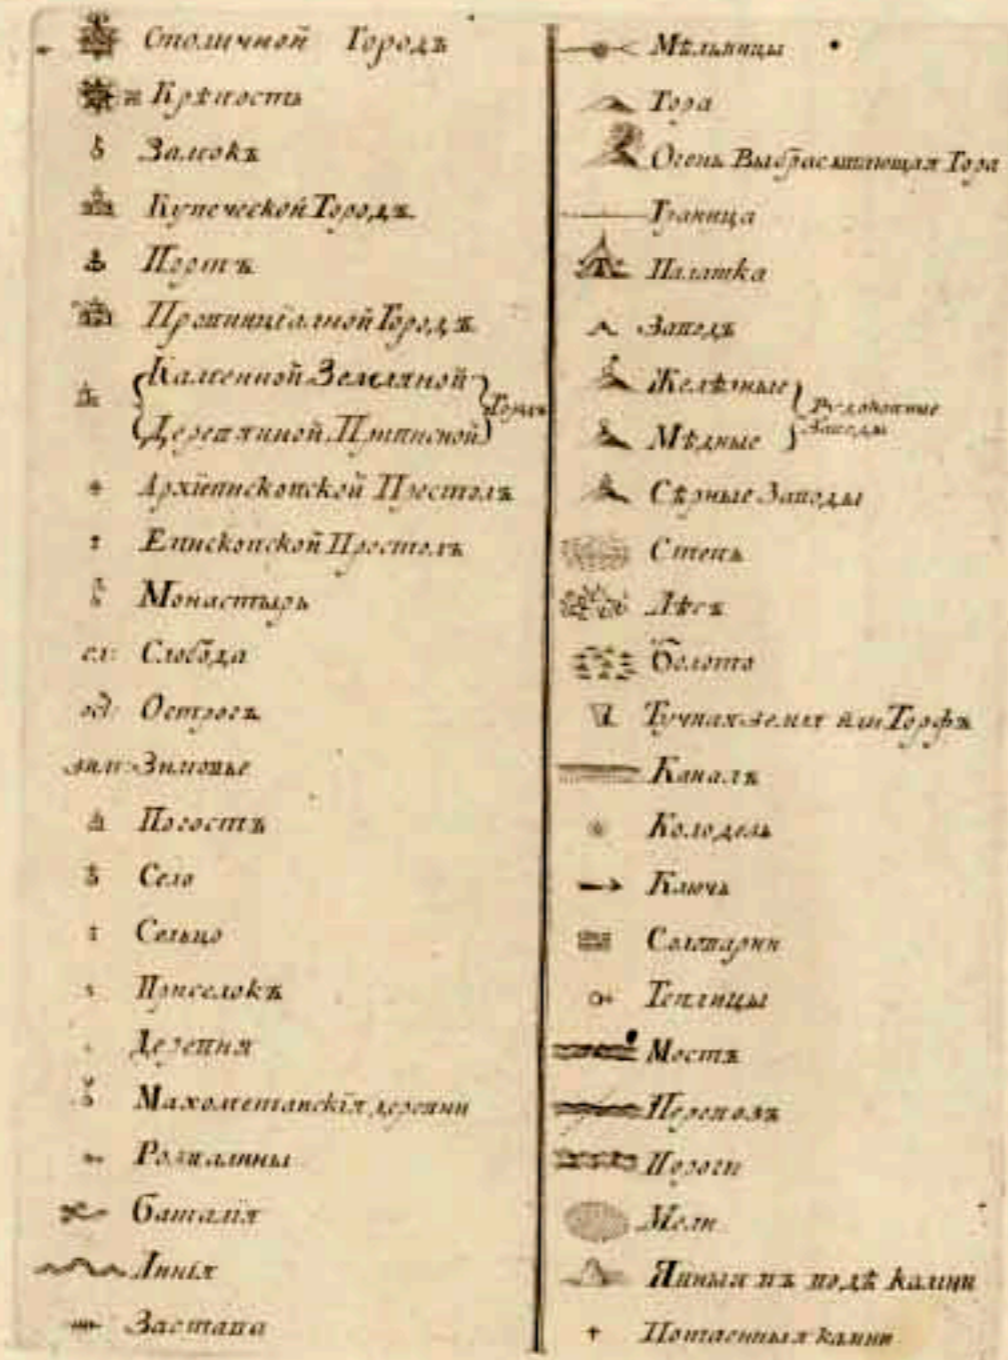 Столичной Городъ
Крѣпость
Замокъ
Купеческой Городъ
Портъ
Провинціалной Городъ
Каменной Земляной
Городъ
Деревянной Приписной
Архіепископской Престолъ
Епископской Престолъ
Монастырь
сл: Слобода
ост: Острогъ
зим: Зимовье
Погостъ
Село
Сельцо
Приселокъ
Деревня
Махометанскія деревни
Розвалины
Баталія
Линія
Застава
Мѣльницы
Гора
Огень Выбрасывающая Гора
Граница
Палатка
Заводъ
Желѣзные
Рудокопные
Заводы
Мѣдные
Сѣрные Заводы
Степь
Лѣсъ
Болото
Тучная земля или Торфъ
Каналъ
Колодезь
Ключь
Соловарни
Теплицы
Мостъ
Перевозъ
Пороги
Мели
Явныя въ водѣ камни
Потаенныя камни